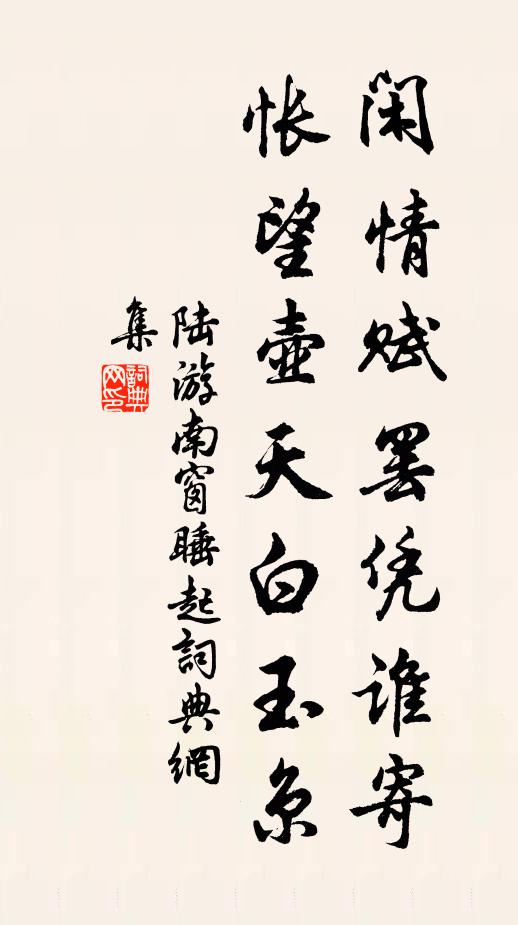 闲情赋罢凭谁寄
怅望壶天白玉京
陆游南窗睡起詞典網
集
詞典
网印